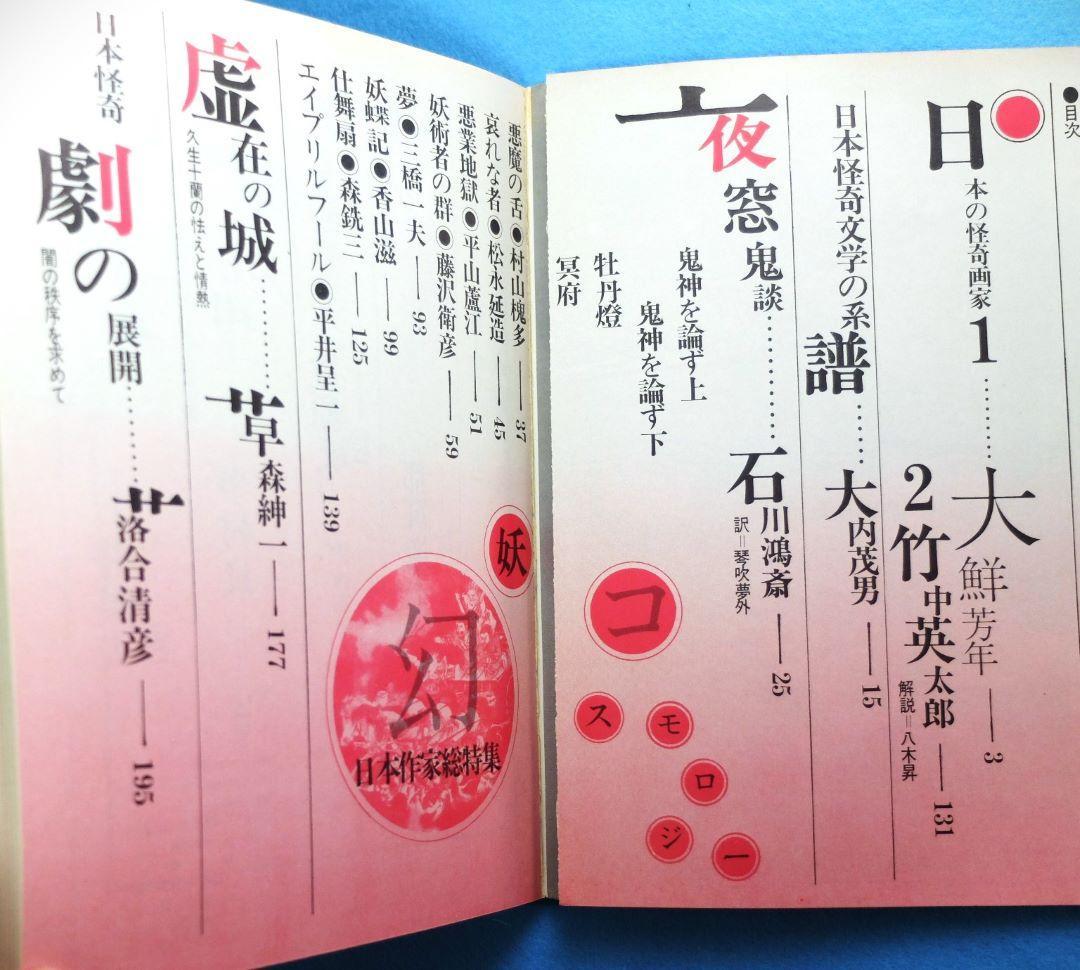 ●目次
日本の怪奇画家1………大鮮芳年――3
2竹中英太郎――131
解説＝八木昇
日本怪奇文学の系譜……大内茂男――15
夜窓鬼談…………石川鴻斎――25
訳＝琴吹夢外
鬼神を論ず上
鬼神を論ず下
牡丹燈
冥府
コスモロジー
妖
幻
日本作家総特集
悪魔の舌●村山槐多――37
哀れな者●松永延造――45
悪業地獄●平山蘆江――51
妖術者の群●藤沢衛彦――59
夢●三橋一夫――93
妖蝶記●香山滋――99
仕舞扇●森銑三――125
エイプリルフール●平井呈一――139
虚在の城…………草森紳一――177
久生十蘭の怯えと情熱
日本怪奇劇の展開………落合清彦――195
闇の秩序を求めて